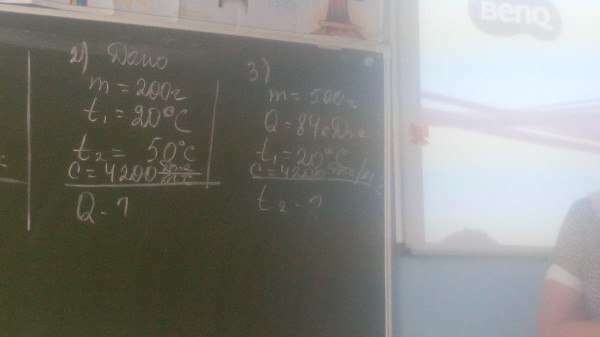 BENQ
2) Дано
m = 200г
t₁ = 20°C
t₂ = 50°C
c = 4200 Дж/кг°C
Q - ?
3)
m = 500г
Q = 84кДж
t₁ = 20°C
c = 4200
t₂ - ?